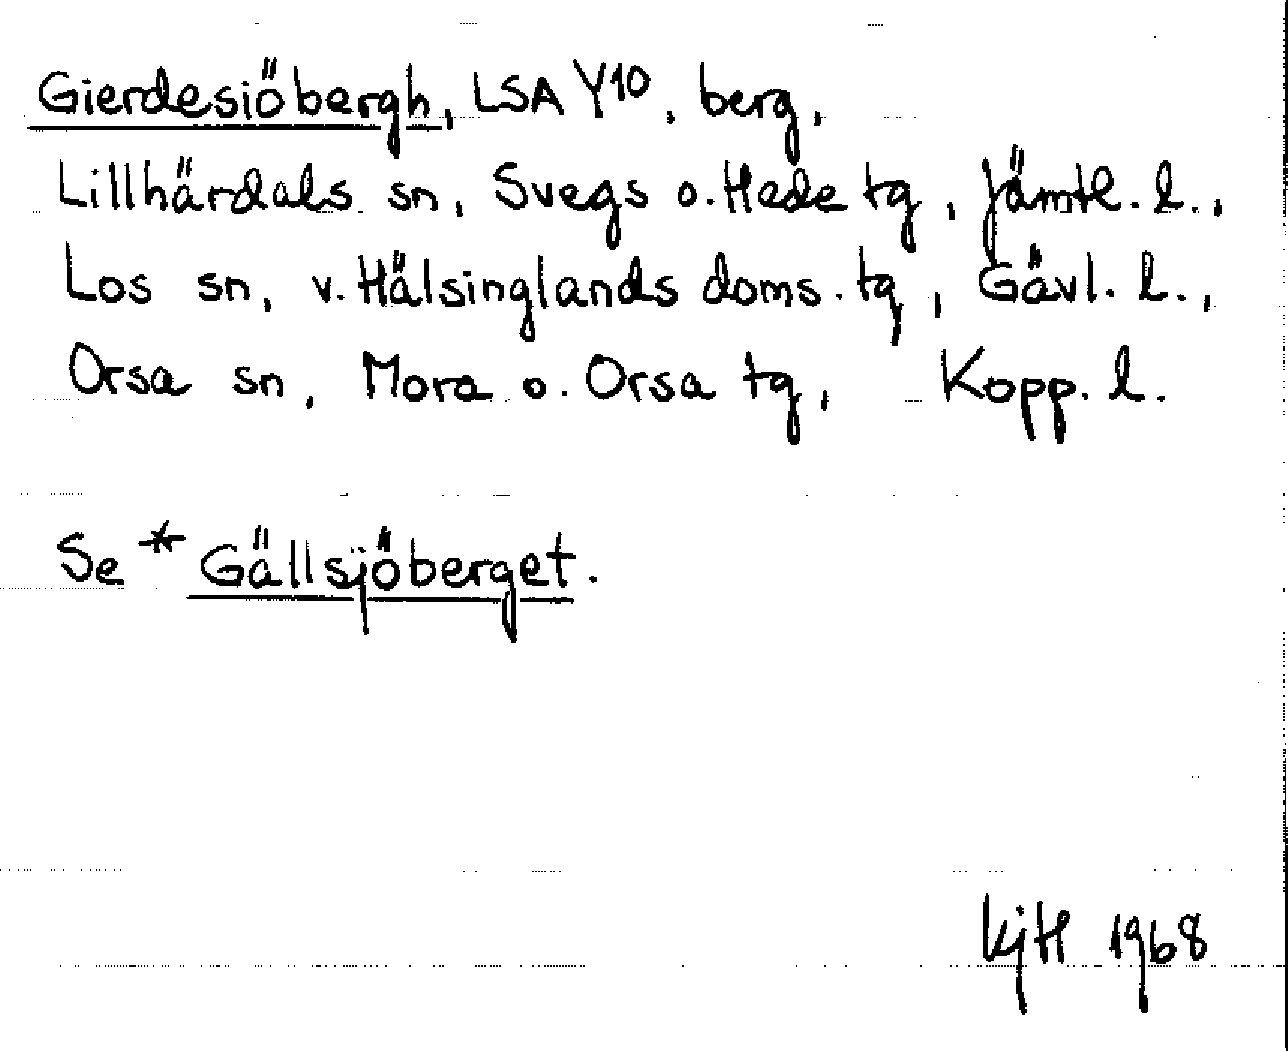 Gierdesiöbergh, LSA Y10, berg,
Lillhärdals sn, Svegs o. Hede tg, Jämtl. l.,
Los sn, v. Hälsinglands doms. tg, Gävl. l.,
Orsa sn, Mora o. Orsa tg, Kopp. l.
Se * Gällsjöberget.
KjH 1968